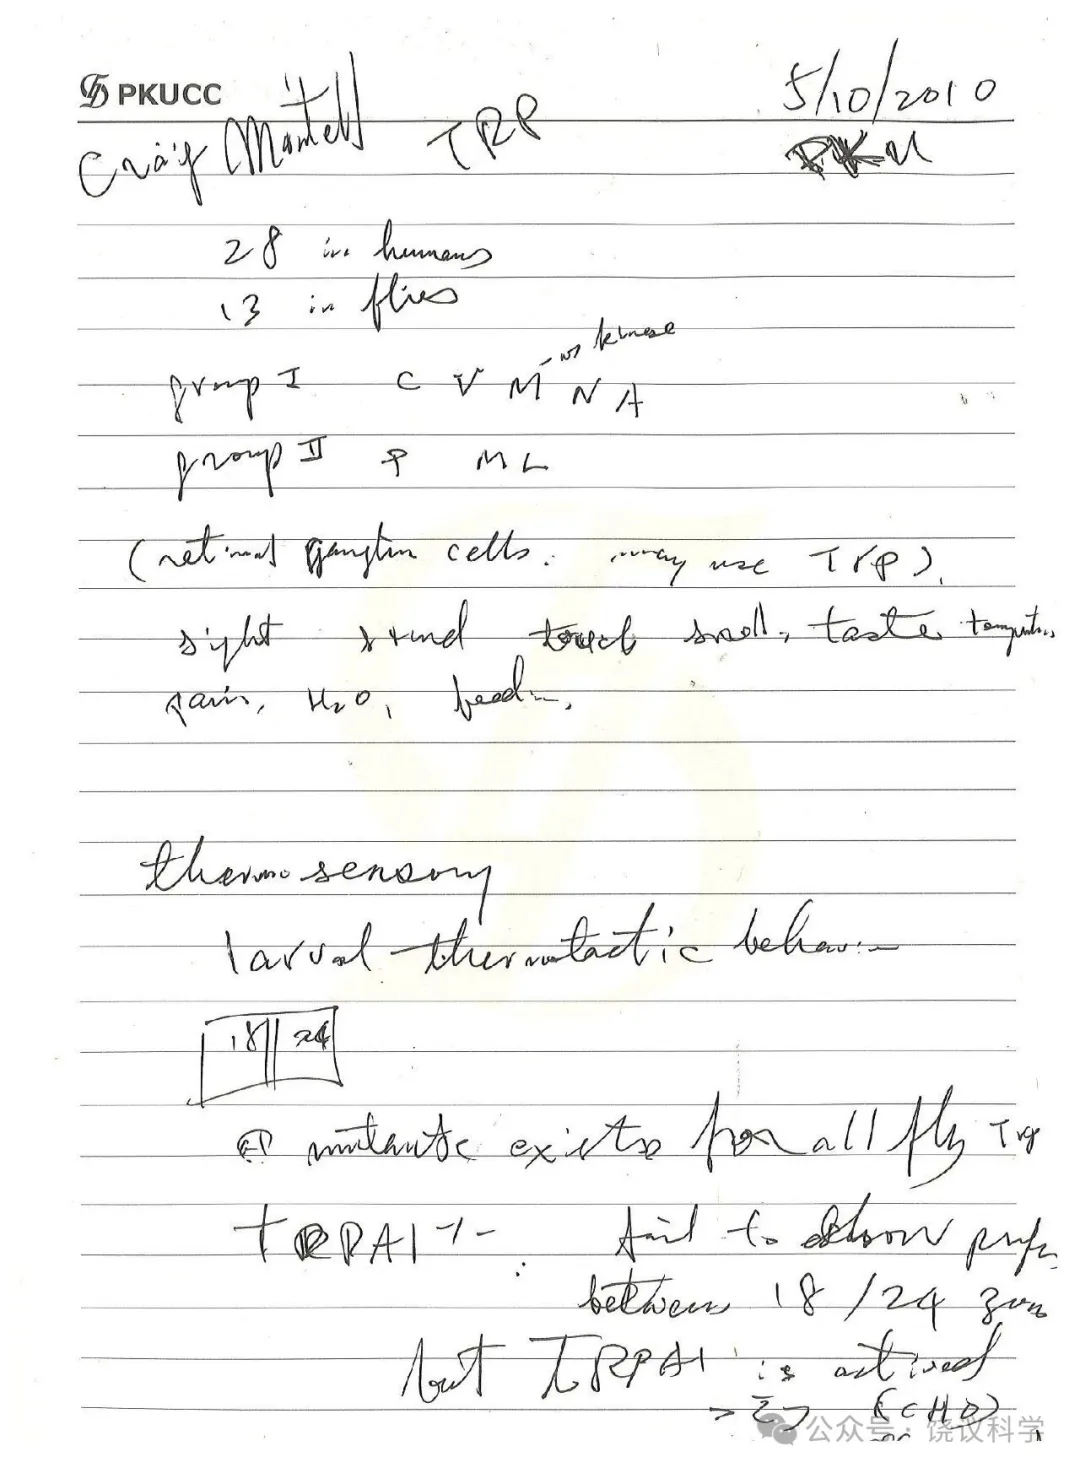 PKUCC
5/10/2010
Craig Montell TRP PKU
28 in humans
13 in flies
w kinase
group I C V M N A
group II P ML
(retinal ganglion cells. may use TRP).
sight sound touch smell, taste
pain, H2O,
thermosensory
larval thermotactic behavior
18 24
mutants exists for all fly Trp
TRPA1 -/- fail to show
between 18/24
but TRPA1 is
(CHO)
公众号：饶议科学